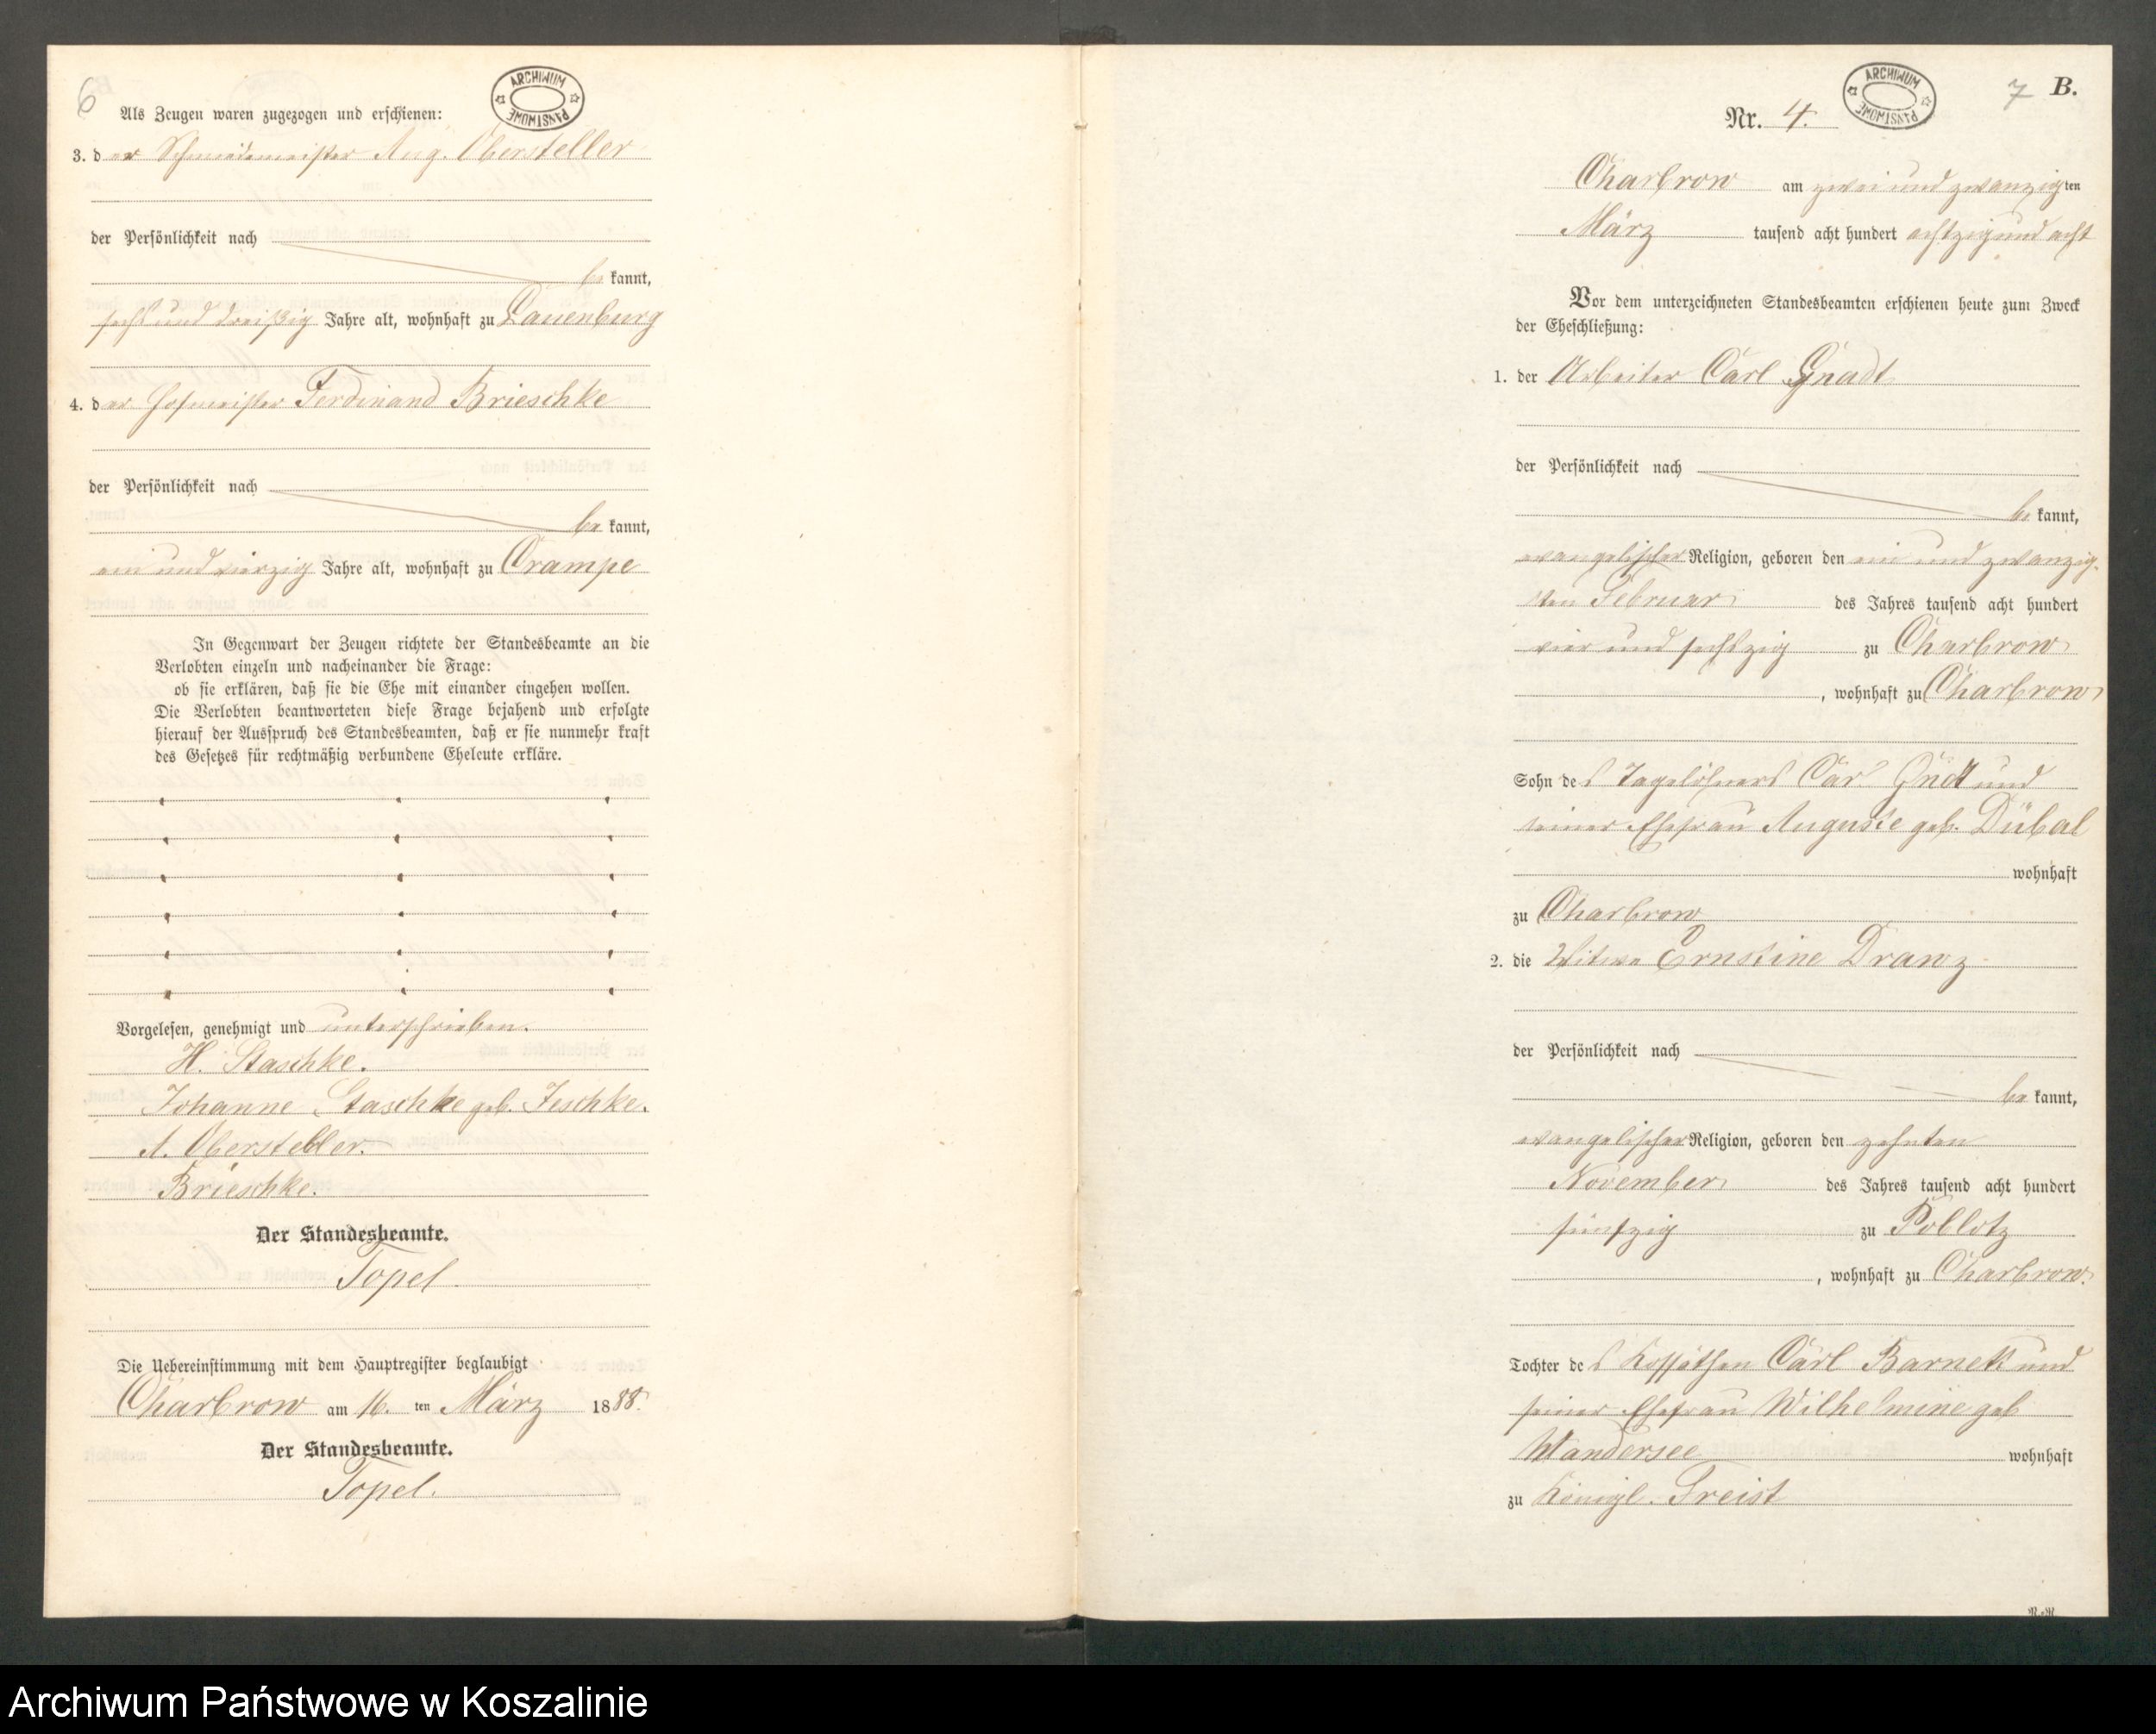 6
ARCHIWUM PAŃSTWOWE
Als Zeugen waren zugezogen und erschienen:
3. der Schmiedemeister Aug. Obersteller
der Persönlichkeit nach
be kannt,
sechs und dreißig Jahre alt, wohnhaft zu Lauenburg
4. der Hofmeister Ferdinand Brieschke
der Persönlichkeit nach
be kannt,
ein und vierzig Jahre alt, wohnhaft zu Crampe
In Gegenwart der Zeugen richtete der Standesbeamte an die
Verlobten einzeln und nacheinander die Frage:
ob sie erklären, daß sie die Ehe mit einander eingehen wollen.
Die Verlobten beantworteten diese Frage bejahend und erfolgte
hierauf der Ausspruch des Standesbeamten, daß er sie nunmehr kraft
des Gesetzes für rechtmäßig verbundene Eheleute erkläre.
Vorgelesen, genehmigt und unterschrieben.
H. Staschke.
Johanne Staschke geb. Jeschke.
A. Obersteller.
Brieschke.
Der Standesbeamte.
Topel
Die Uebereinstimmung mit dem Hauptregister beglaubigt
Charbrow am 16. ten März 1888.
Der Standesbeamte.
Topel.
ARCHIWUM PAŃSTWOWE
7 B.
Nr. 4.
Charbrow am zwei und zwanzigten
März tausend acht hundert achtzig und acht
Vor dem unterzeichneten Standesbeamten erschienen heute zum Zweck
der Eheschließung:
1. der Arbeiter Carl Gnadt
der Persönlichkeit nach
be kannt,
evangelischer Religion, geboren den ein und zwanzig-
sten Februar des Jahres tausend acht hundert
vier und sechszig zu Charbrow
, wohnhaft zu Charbrow
Sohn des Tagelöhners Carl und
seiner Ehefrau Auguste geb. Dübal
wohnhaft
zu Charbrow
2. die Witwe Ernstine Drawz
der Persönlichkeit nach
be kannt,
evangelischer Religion, geboren den zehnten
November des Jahres tausend acht hundert
fünfzig zu Poblotz
, wohnhaft zu Charbrow.
Tochter des Kossäthen Carl und
seiner Ehefrau Wilhelmine geb
Wandersee wohnhaft
zu Königl. Freist
Archiwum Państwowe w Koszalinie